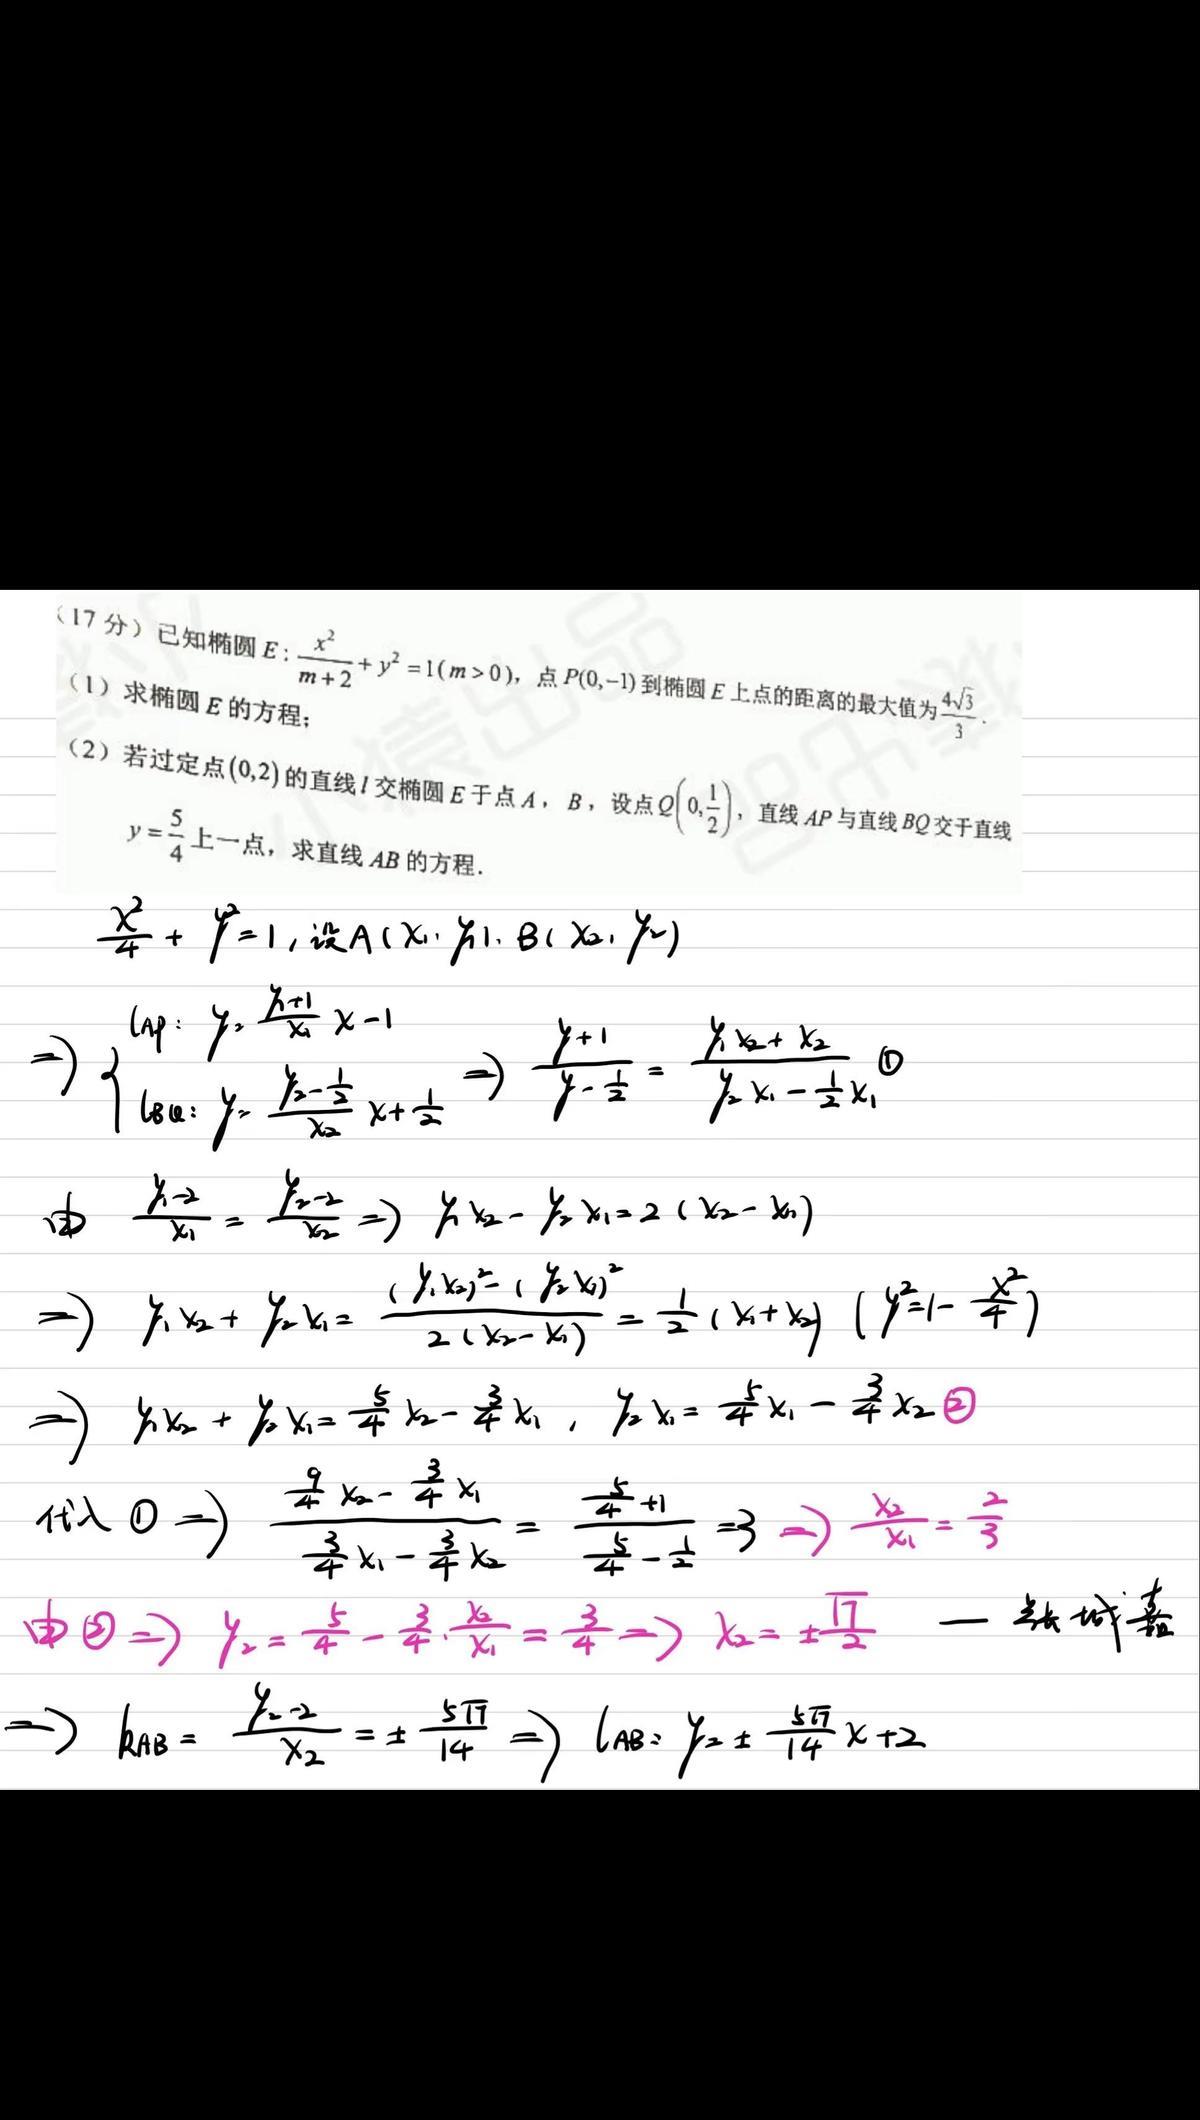 （17 分）已知椭圆 E: x²/(m+2) + y² = 1(m>0)，点 P(0,-1) 到椭圆 E 上点的距离的最大值为 4√3/3.
（1）求椭圆 E 的方程；
（2）若过定点(0,2)的直线 l 交椭圆 E 于点 A，B，设点 Q(0, 1/2)，直线 AP 与直线 BQ 交于直线
y = 5/4 上一点，求直线 AB 的方程.
x²/4 + y² = 1, 设A(x₁, y₁), B(x₂, y₂)
⇒ { l_AP: y = (y₁+1)/x₁ x - 1
l_BQ: y = (y₂ - 1/2)/x₂ x + 1/2 ⇒ (y+1)/(y - 1/2) = (y₁x₂ + x₂)/(y₂x₁ - 1/2 x₁) ①
由 (y₁-2)/x₁ = (y₂-2)/x₂ ⇒ y₁x₂ - y₂x₁ = 2(x₂ - x₁)
⇒ y₁x₂ + y₂x₁ = ((y₁x₂)² - (y₂x₁)²)/(2(x₂ - x₁)) = 1/2 (x₁+x₂) (y² = 1 - x²/4)
⇒ y₁x₂ + y₂x₁ = 5/4 x₂ - 3/4 x₁, y₂x₁ = 5/4 x₁ - 3/4 x₂ ②
代入 ① ⇒ (9/4 x₂ - 3/4 x₁)/(3/4 x₁ - 3/4 x₂) = (5/4 + 1)/(5/4 - 1/2) = 3 ⇒ x₂/x₁ = 2/3
由 ② ⇒ y₂ = 5/4 - 3/4 · x₂/x₁ = 3/4 ⇒ x₂ = ±√7/2 —
⇒ k_AB = (y₂-2)/x₂ = ± 5√7/14 ⇒ l_AB: y = ± 5√7/14 x + 2